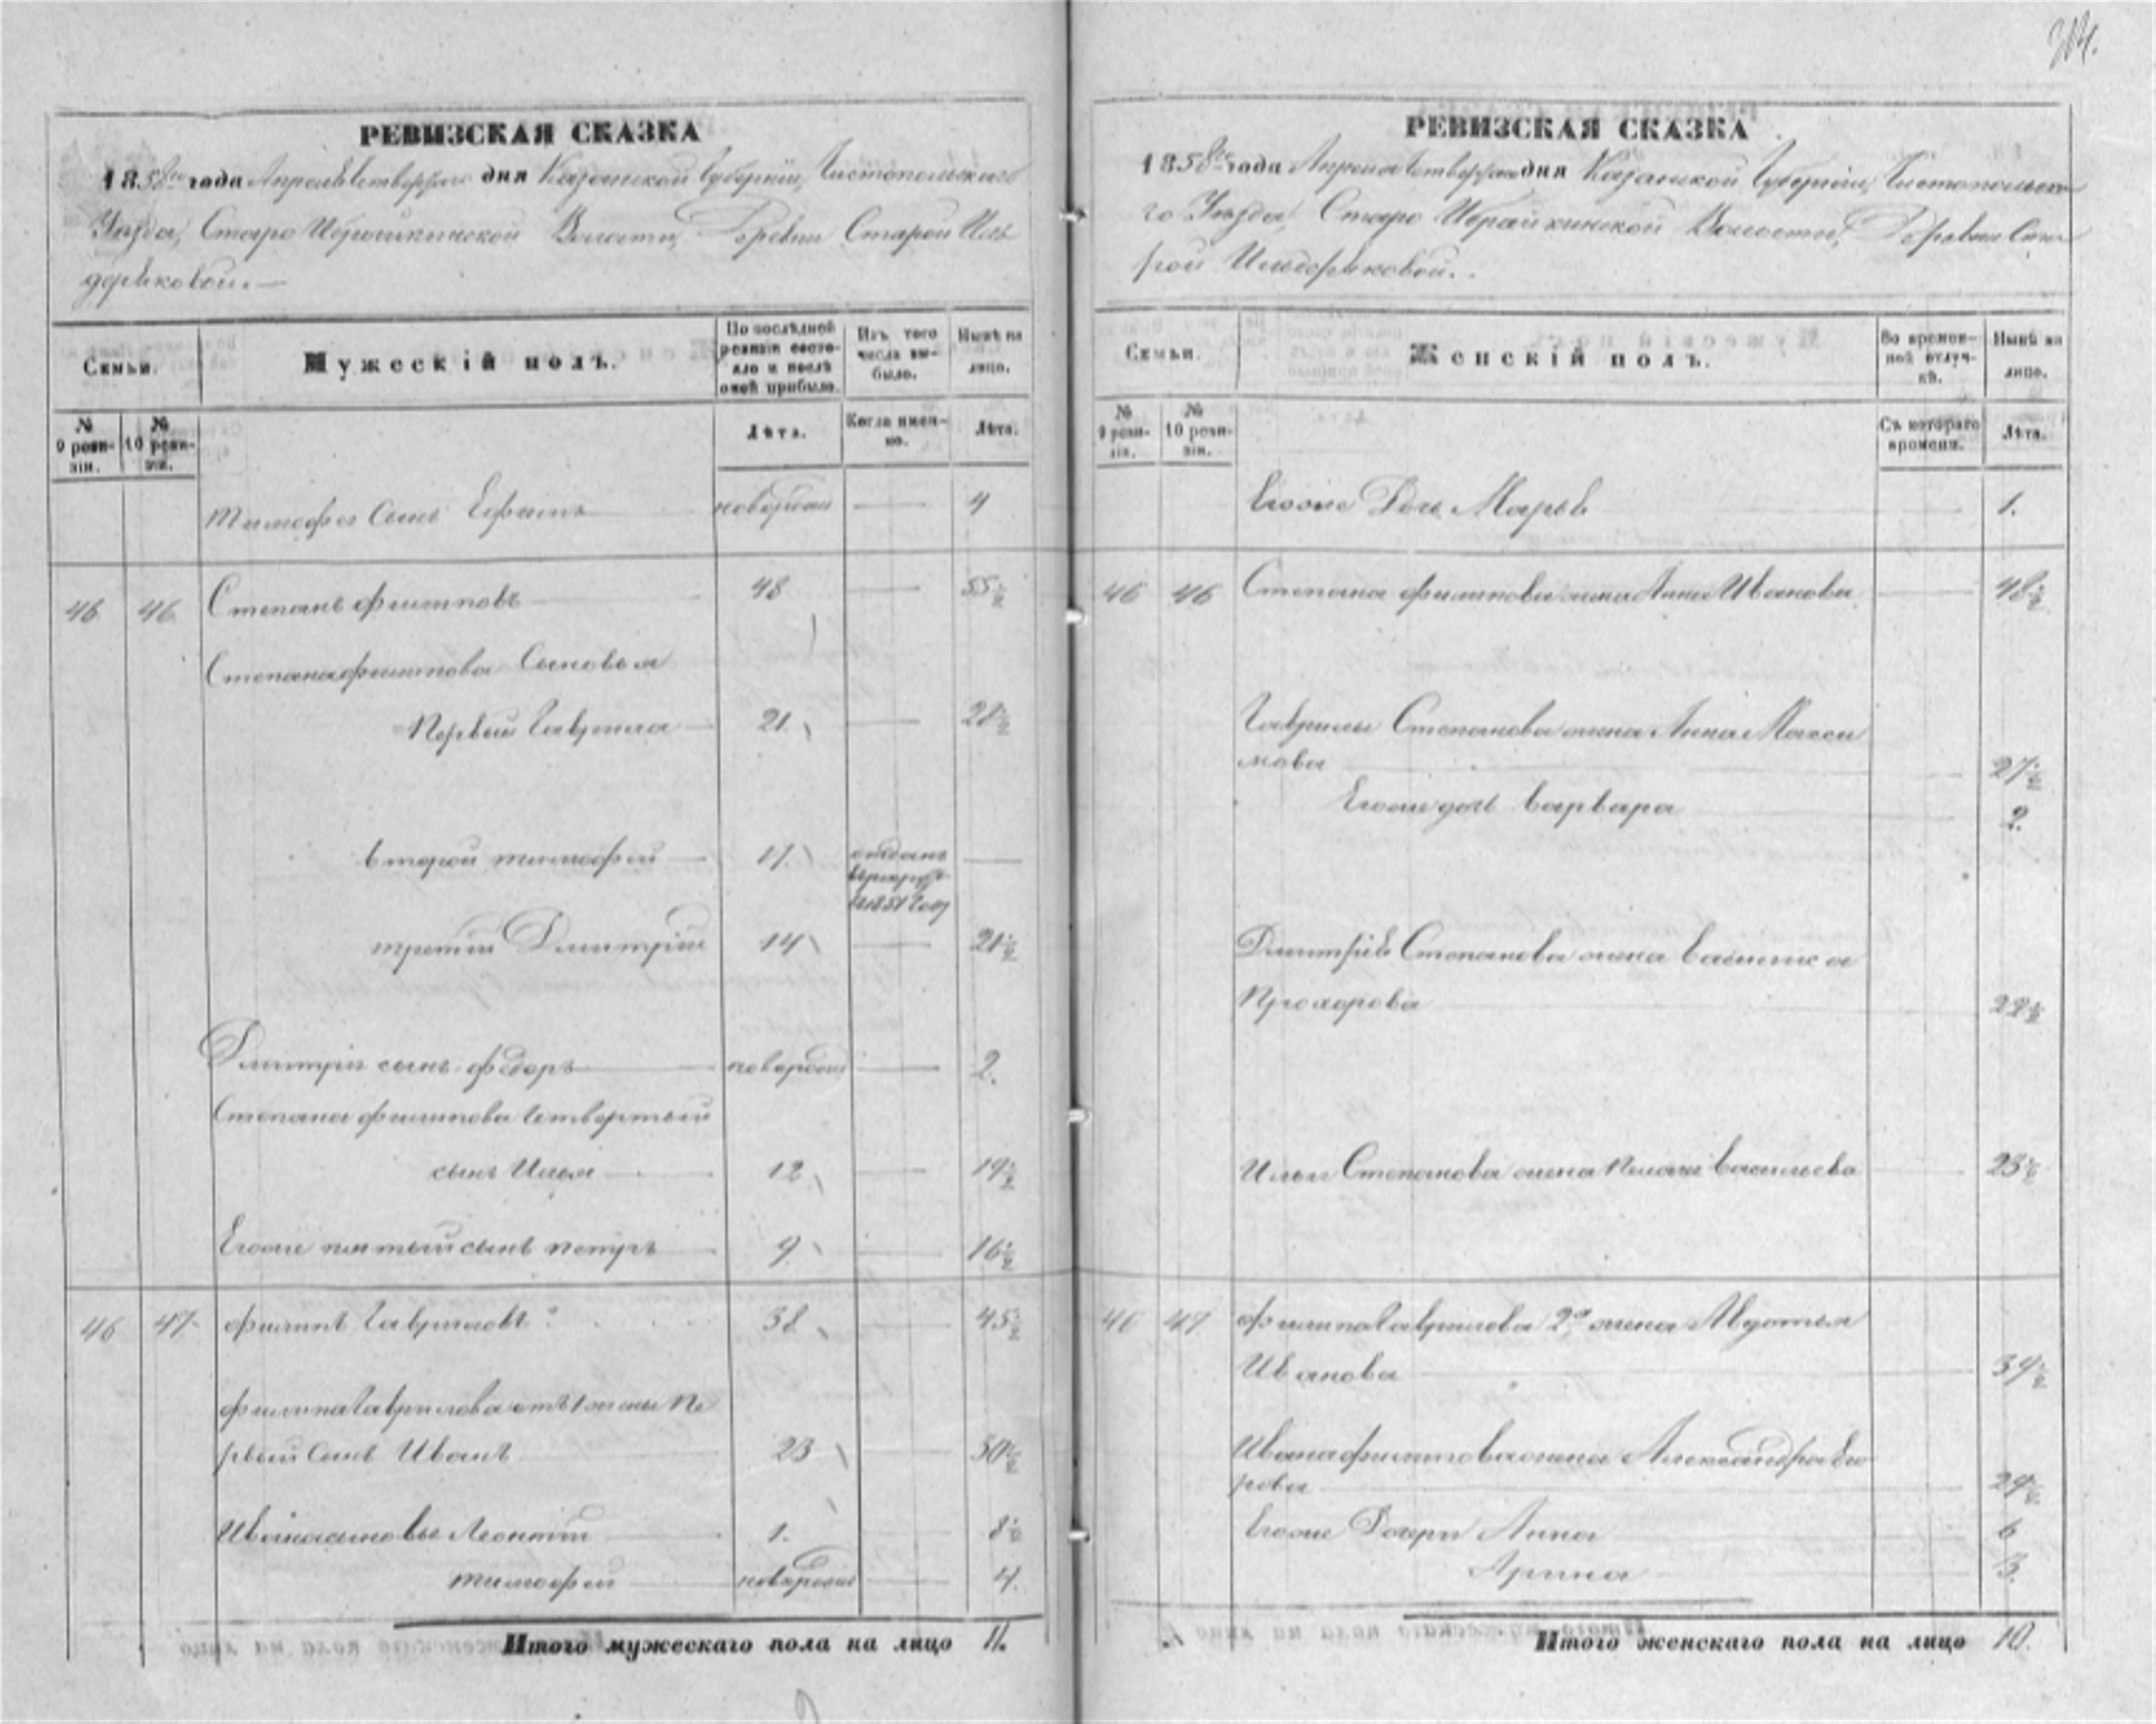 РЕВИЗСКАЯ СКАЗКА
1858го года Апреля четвертого дня Казанской Губернии, Чистопольскаго
Уезда, Старо Ибрайкинской Волости, Деревни Старой Иль
деряковой.—
Семьи.
Мужескій полъ.
По послѣдней ревизіи состояло и послѣ оной прибыло.
Изъ того числа выбыло.
Нынѣ на лицо.
№ 9 ревизіи.
№ 10 ревизіи.
Лѣта.
Когда именно.
Лѣта.
Тимофея Сынъ Ефимъ новорожден 4
46 46 Степанъ Филиповъ 48 55½
Степана Филипова Сыновья
Первый Гаврила 21 28½
второй тимофей 17 отданъ
в рекруты
в 1851 Году
третий Дмитрій 14 21½
Дмитрія сынъ федоръ новорожден 2.
Степана филипова Четвертый
сынъ Илья 12 19½
Егоже пятый сынъ петръ 9 16½
46 47 филипъ Гавриловъ 38 45½
филипа Гаврилова отъ 1 жены Пе
рвый Сынъ Иванъ 23 30½
Ивана сыновья Леонтий 1. 8½
тимофей новорожден 4.
Итого мужескаго пола на лицо 11.
РЕВИЗСКАЯ СКАЗКА
1858го года Апреля четвертого дня Казанской Губернии, Чистопольска
го Уезда, Старо Ибрайкинской Волости, Деревни Ста
рой Ильдеряковой.
Семьи.
Женскій полъ.
Во временной отлучкѣ.
Нынѣ на лицо.
№ 9 ревизіи.
№ 10 ревизіи.
Съ котораго времени.
Лѣта.
Егоже Дочь Марья 1.
46 46 Степана филипова жена Анна Иванова 48½
Гаврилы Степанова жена Анна Макси
мова 27½
Егоже дочь варвара 2.
Дмитрія Степанова жена василиса
Прохорова 22½
Ильи Степанова жена васильева 23½
46 47 филипа Гаврилова 2я жена Авдотья
Иванова 34½
Ивана филипова жена Александра Его
рова 29½
Егоже Дочери Анна 6
Арина 3.
Итого женскаго пола на лицо 10.